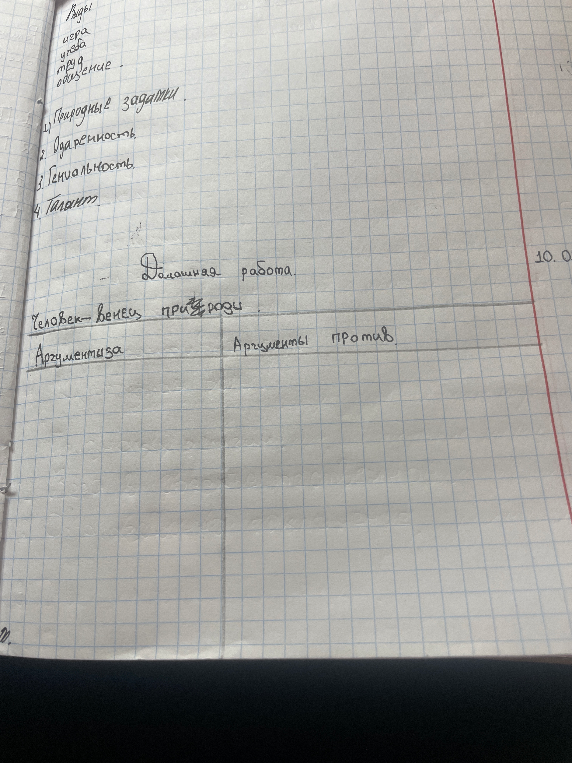 Виды
игра
учёба
труд
общение.
1. Природные задатки.
2. Одаренность.
3. Гениальность.
4. Талант.
Домашняя работа.
10.0
Человек-венец природы.
Аргументы за
Аргументы против